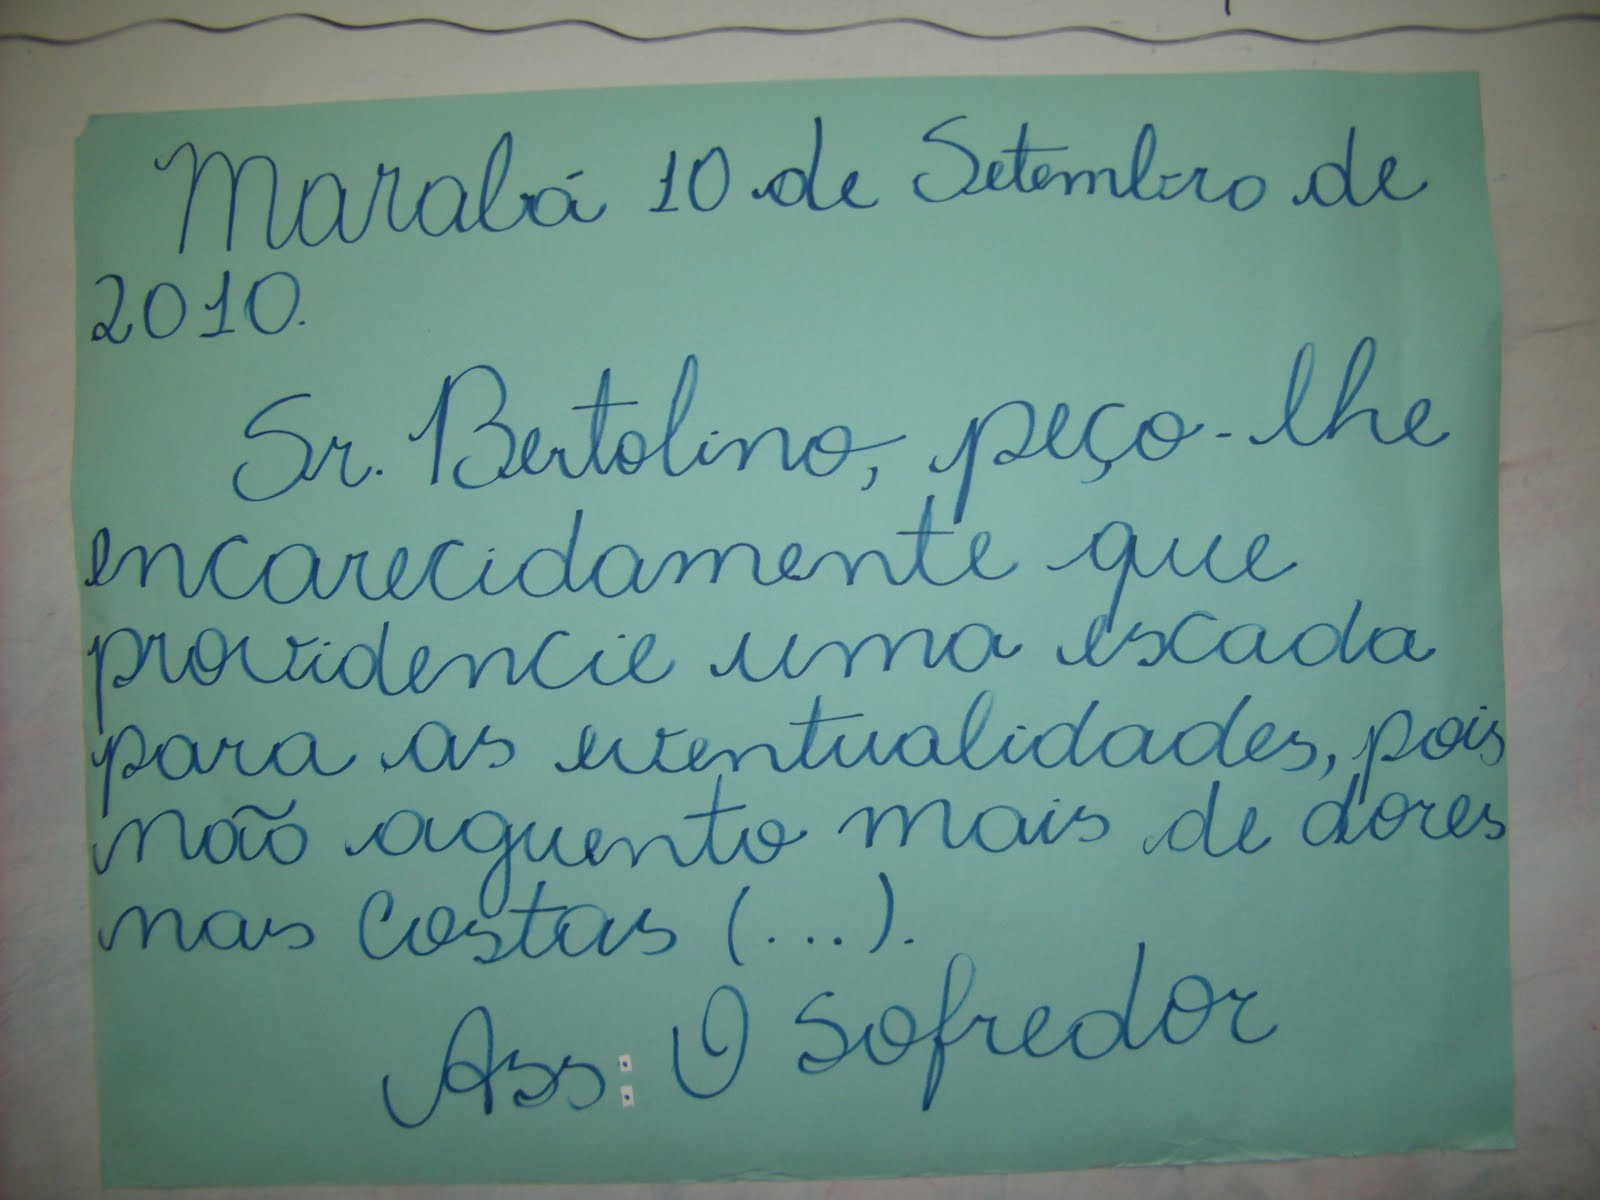 Marabá 10 de Setembro de
2010.
Sr. Bertolino, peço-lhe
encarecidamente que
providencie uma escada
para as eventualidades, pois
não aguento mais de dores
nas costas (...).
Ass: O Sofredor